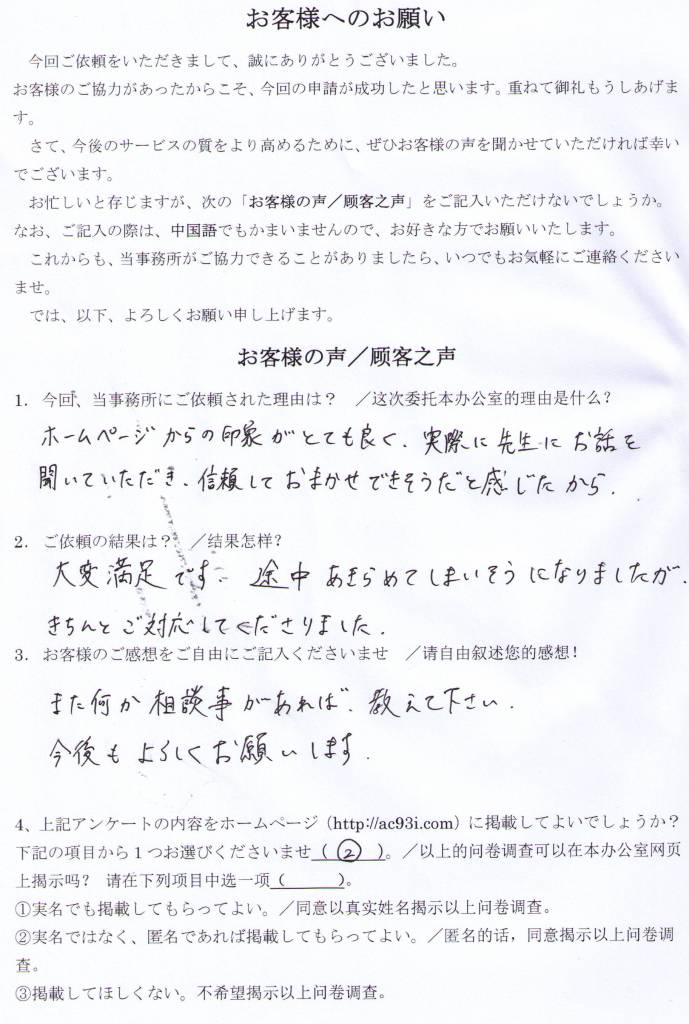 お客様へのお願い
今回ご依頼をいただきまして、誠にありがとうございました。
お客様のご協力があったからこそ、今回の申請が成功したと思います。重ねて御礼もうしあげま
す。
さて、今後のサービスの質をより高めるために、ぜひお客様の声を聞かせていただければ幸い
でございます。
お忙しいと存じますが、次の「お客様の声／顾客之声」をご記入いただけないでしょうか。
なお、ご記入の際は、中国語でもかまいませんので、お好きな方でお願いいたします。
これからも、当事務所がご協力できることがありましたら、いつでもお気軽にご連絡ください
ませ。
では、以下、よろしくお願い申し上げます。
お客様の声／顾客之声
1．今回、当事務所にご依頼された理由は？　／这次委托本办公室的理由是什么？
ホームページからの印象がとても良く、実際に先生にお話を
聞いていただき、信頼しておまかせできそうだと感じたから。
2．ご依頼の結果は？　／结果怎样？
大変満足です、途中あきらめてしまいそうになりましたが、
きちんとご対応してくださりました。
3．お客様のご感想をご自由にご記入くださいませ　／请自由叙述您的感想！
また何か相談事があれば、教えて下さい。
今後もよろしくお願いします。
4、上記アンケートの内容をホームページ（http://ac93i.com）に掲載してよいでしょうか？
下記の項目から１つお選びくださいませ（　②　）。／以上的问卷调查可以在本办公室网页
上揭示吗？ 请在下列项目中选一项（　　　）。
①実名でも掲載してもらってよい。／同意以真实姓名揭示以上问卷调查。
②実名ではなく、匿名であれば掲載してもらってよい。／匿名的话，同意揭示以上问卷调
查。
③掲載してほしくない。不希望揭示以上问卷调查。